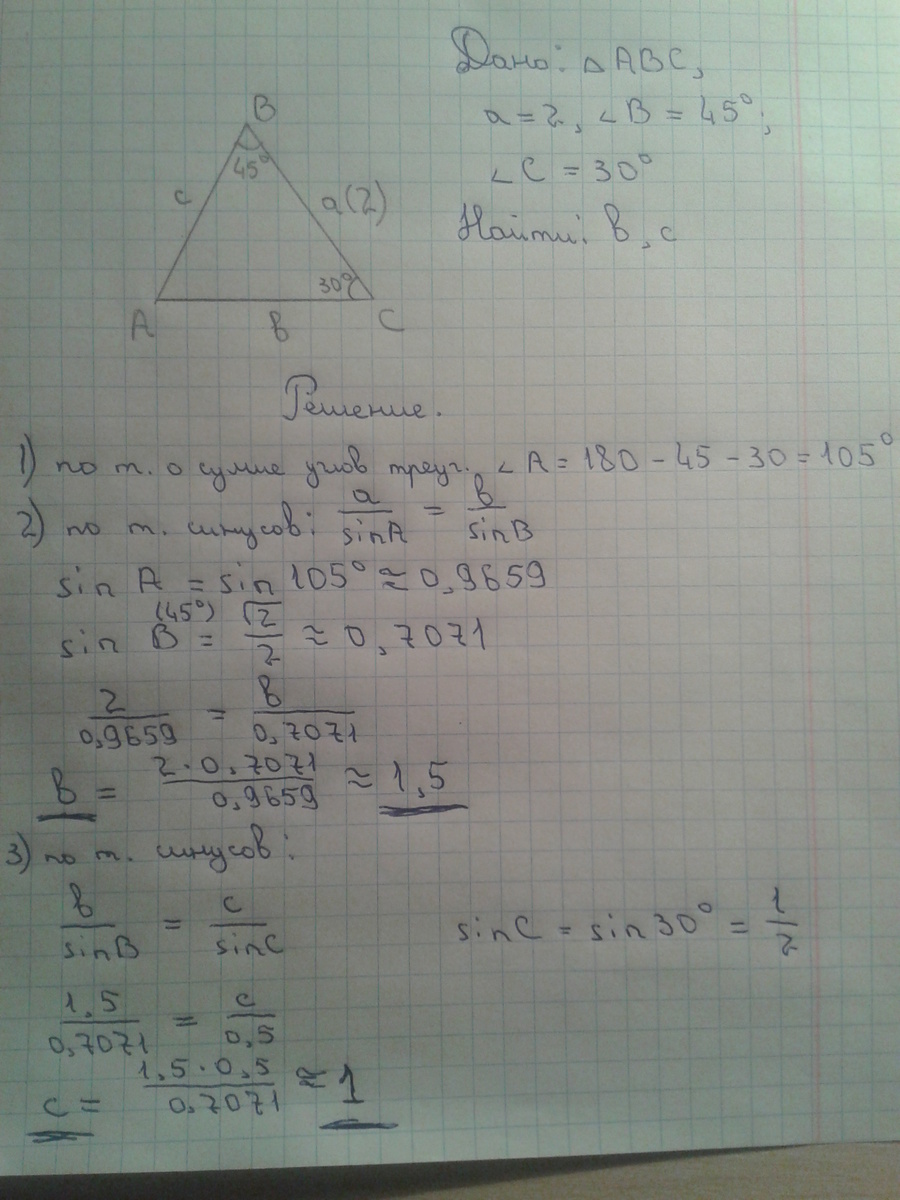 Дано: △ABC,
a = 2, ∠B = 45°;
∠C = 30°
Найти: в, с
B
45°
c
a(2)
30°
A
в
C
Решение.
1) по т. о сумме углов треуг. ∠A = 180 - 45 - 30 = 105°
2) по т. синусов: a/sinA = в/sinB
sin A = sin 105° ≈ 0,9659
sin B (45°) = √2/2 ≈ 0,7071
2/0,9659 = в/0,7071
в = 2·0,7071/0,9659 ≈ 1,5
3) по т. синусов:
в/sinB = c/sinC sinC = sin30° = 1/2
1,5/0,7071 = c/0,5
c = 1,5·0,5/0,7071 ≈ 1